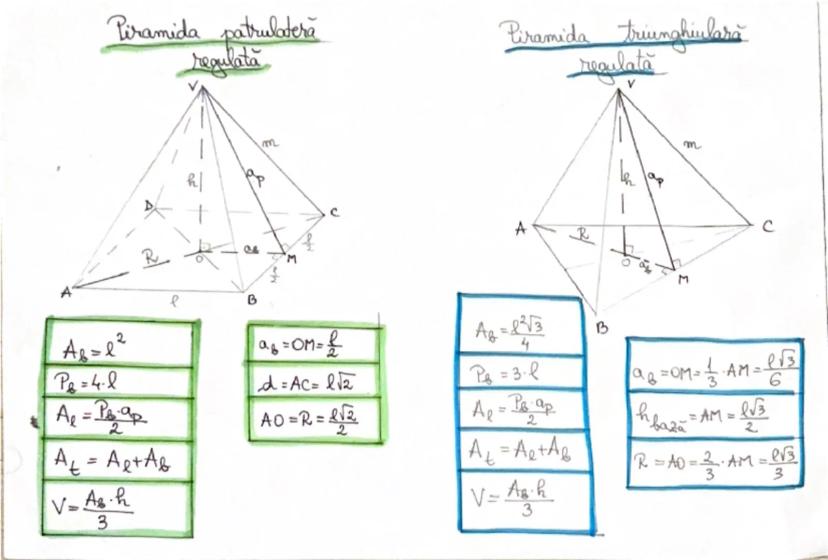 Piramida patrulateră
regulată
V
m
h
aₚ
D
C
R
O
a_b
M
l/2
l/2
A
l
B
A_b = l²
P_b = 4·l
A_l = P_b·aₚ/2
A_t = A_l + A_b
V = A_b·h/3
a_b = OM = l/2
d = AC = l√2
AO = R = l√2/2
Piramida triunghiulară
regulată
V
m
h
aₚ
A
C
R
O
a_b
M
B
A_b = l²√3/4
P_b = 3·l
A_l = P_b·aₚ/2
A_t = A_l + A_b
V = A_b·h/3
a_b = OM = 1/3·AM = l√3/6
h_bază = AM = l√3/2
R = AO = 2/3·AM = l√3/3